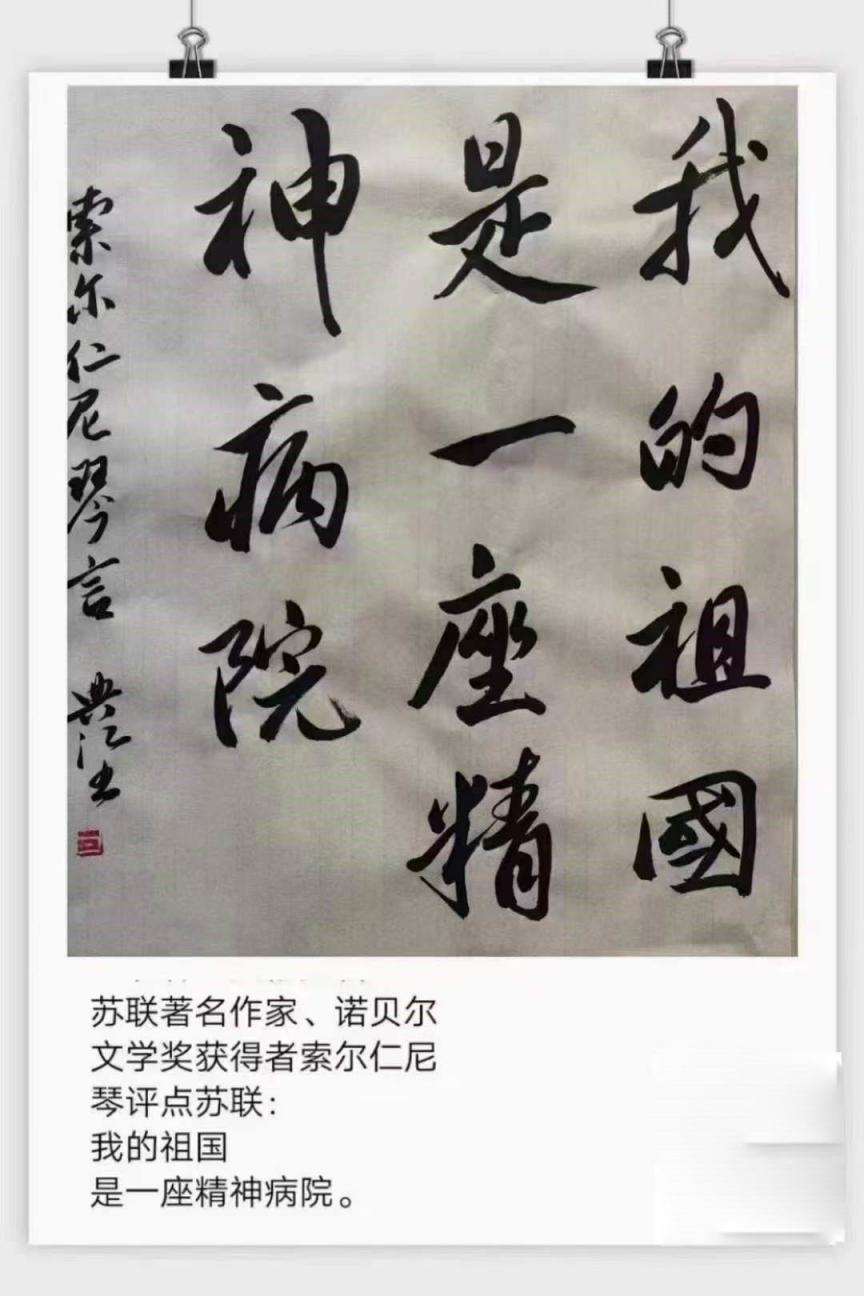 我的祖國
是一座精
神病院
索尔仁尼琴言
苏联著名作家、诺贝尔
文学奖获得者索尔仁尼
琴评点苏联：
我的祖国
是一座精神病院。